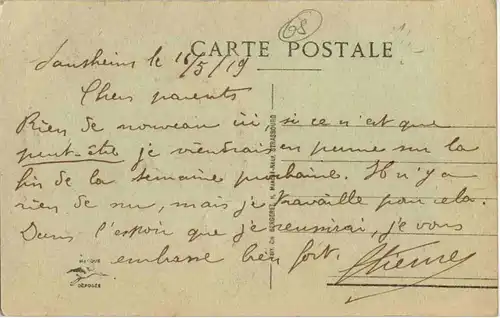 68
CARTE POSTALE
le 16/5/19
Chers parents
Rien de nouveau ici, si ce n'est que
peut-être je viendrais en perme sur la
fin de la semaine prochaine. Il n'y a
rien de su, mais je travaille pour cela.
Dans l'espoir que je réussirai, je vous
embrasse bien fort. Etienne
MARQUE
DÉPOSÉE
STRASBOURG